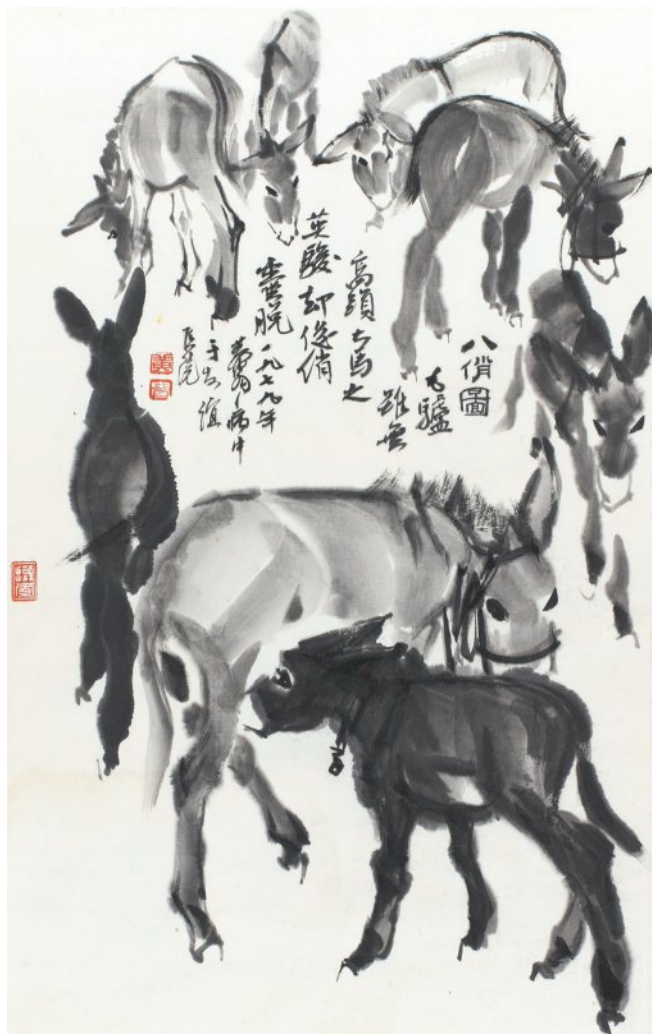 八俏圖
毛驢
雖無
高頭大馬之
英駿却俊俏
靈脫一九七九年
黃胄病中
于